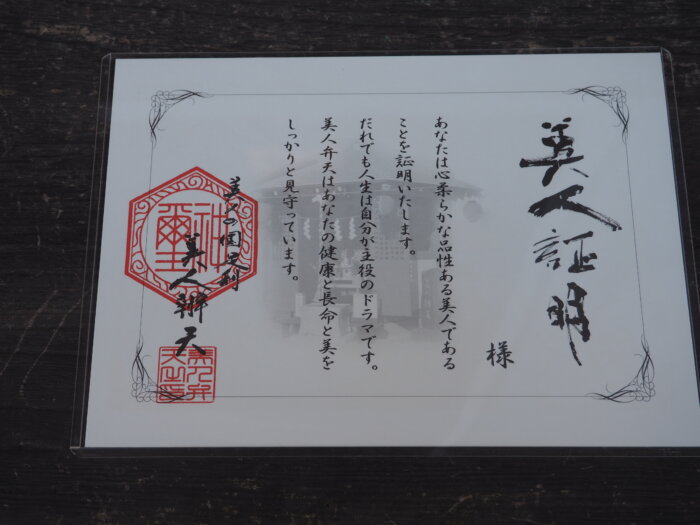 美人証明
様
あなたは心柔らかな品性ある美人である
ことを証明いたします。
だれでも人生は自分が主役のドラマです。
美人弁天はあなたの健康と長命と美を
しっかりと見守っています。
美人の国足利
美人辨天